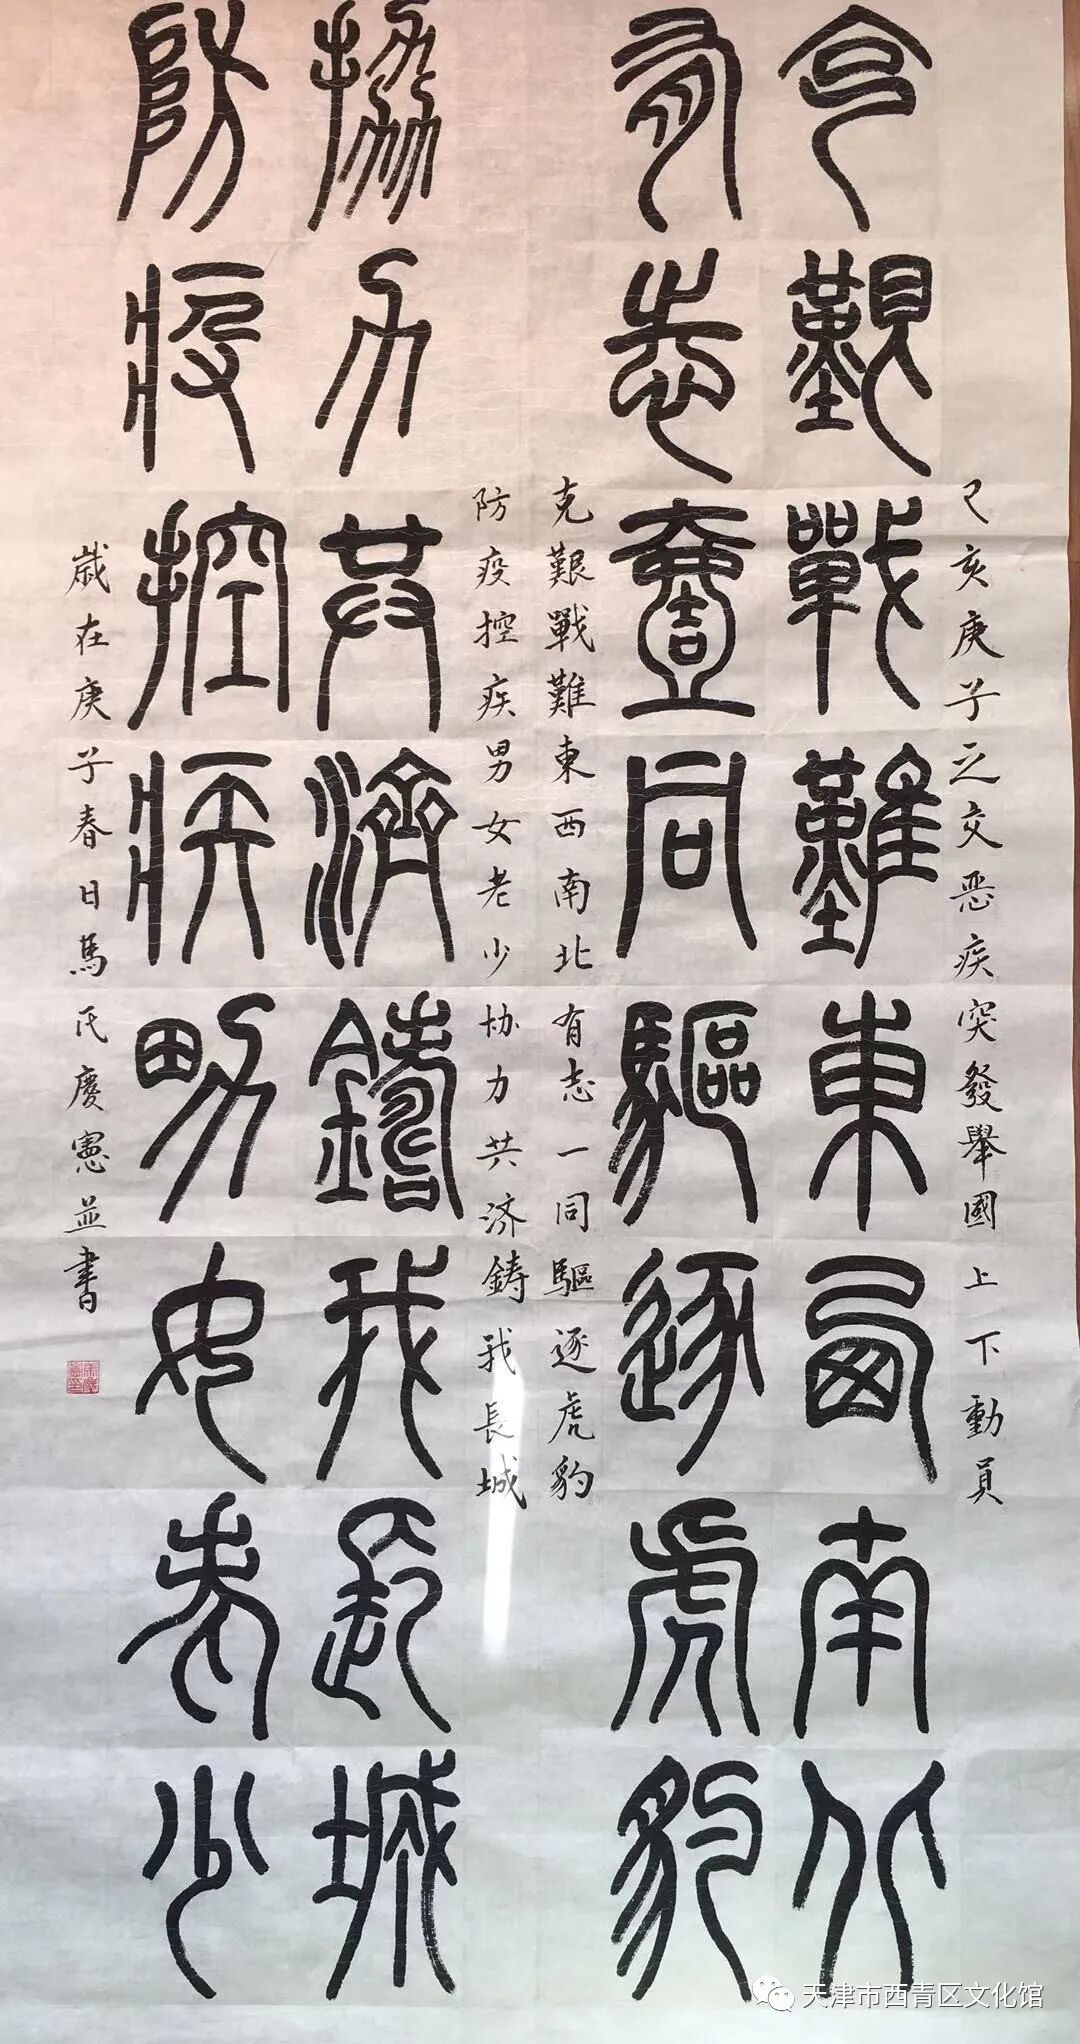 己亥庚子之交恶疾突發舉國上下動員
克艱戰難東西南北
有志壹同驅逐虎豹
克艱戰難東西南北有志一同驅逐虎豹
防疫控疾男女老少协力共济鋳我長城
協力共濟鑄我長城
防疫控疾男女老少
歲在庚子春日馬氏慶憲並書
天津市西青区文化馆